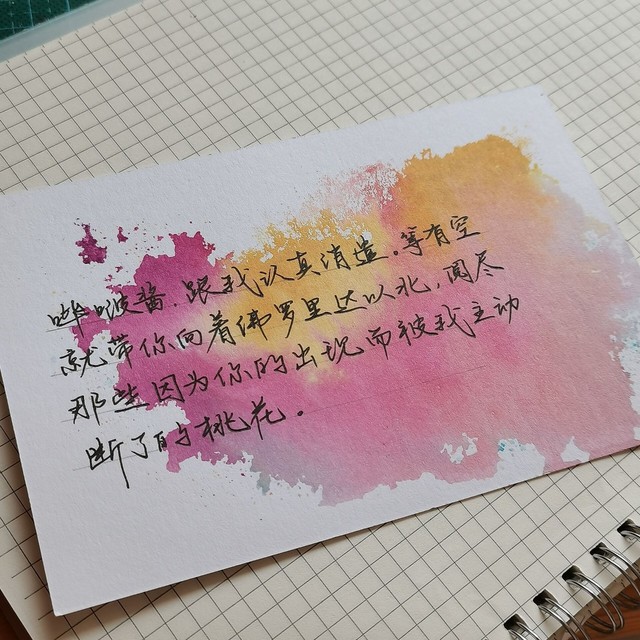 哔啵酱.跟我认真俏造.等有空
就带你向着佛罗里达以北,阅尽
那些因为你的出现而被我主动
断了的桃花。